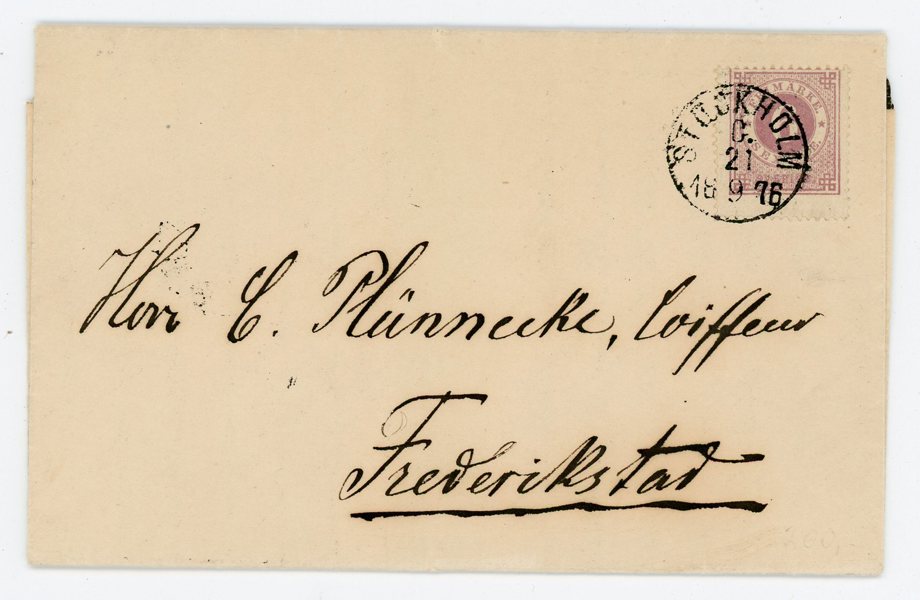 MARKE
STOCKHOLM
C.
21
18 9 76
Herr C. Plünnecke, Coiffeur
Frederikstad